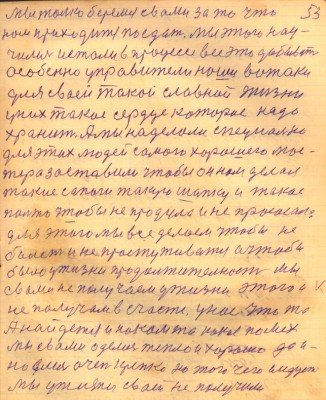 53
мы только берем с вами за то что
нам приходит поедат. мы этого нау-
чились и стали в процессе все это добиват
особенно управители наши вотаки
для своей такой славной жизни
у них такое сердце которое надо
хранит. А мы наделали специално
для этих людей самого хорошего мас-
тера заставили чтобы он нам делал
такие сапоги такую шапку и такое
палто чтобы не продула и не
для этого мы все делаем чтобы не
болет и не простуживатся а чтобы
было у жизни продолжителност мы
с вами не получаем у жизни этого и
не получаем в счасте, у нас это то
А найдется и покам та пока по них
мы с вами оделис тепло и хорошо да и
но очен крепко но того чего следует
мы у жизни своей не получили